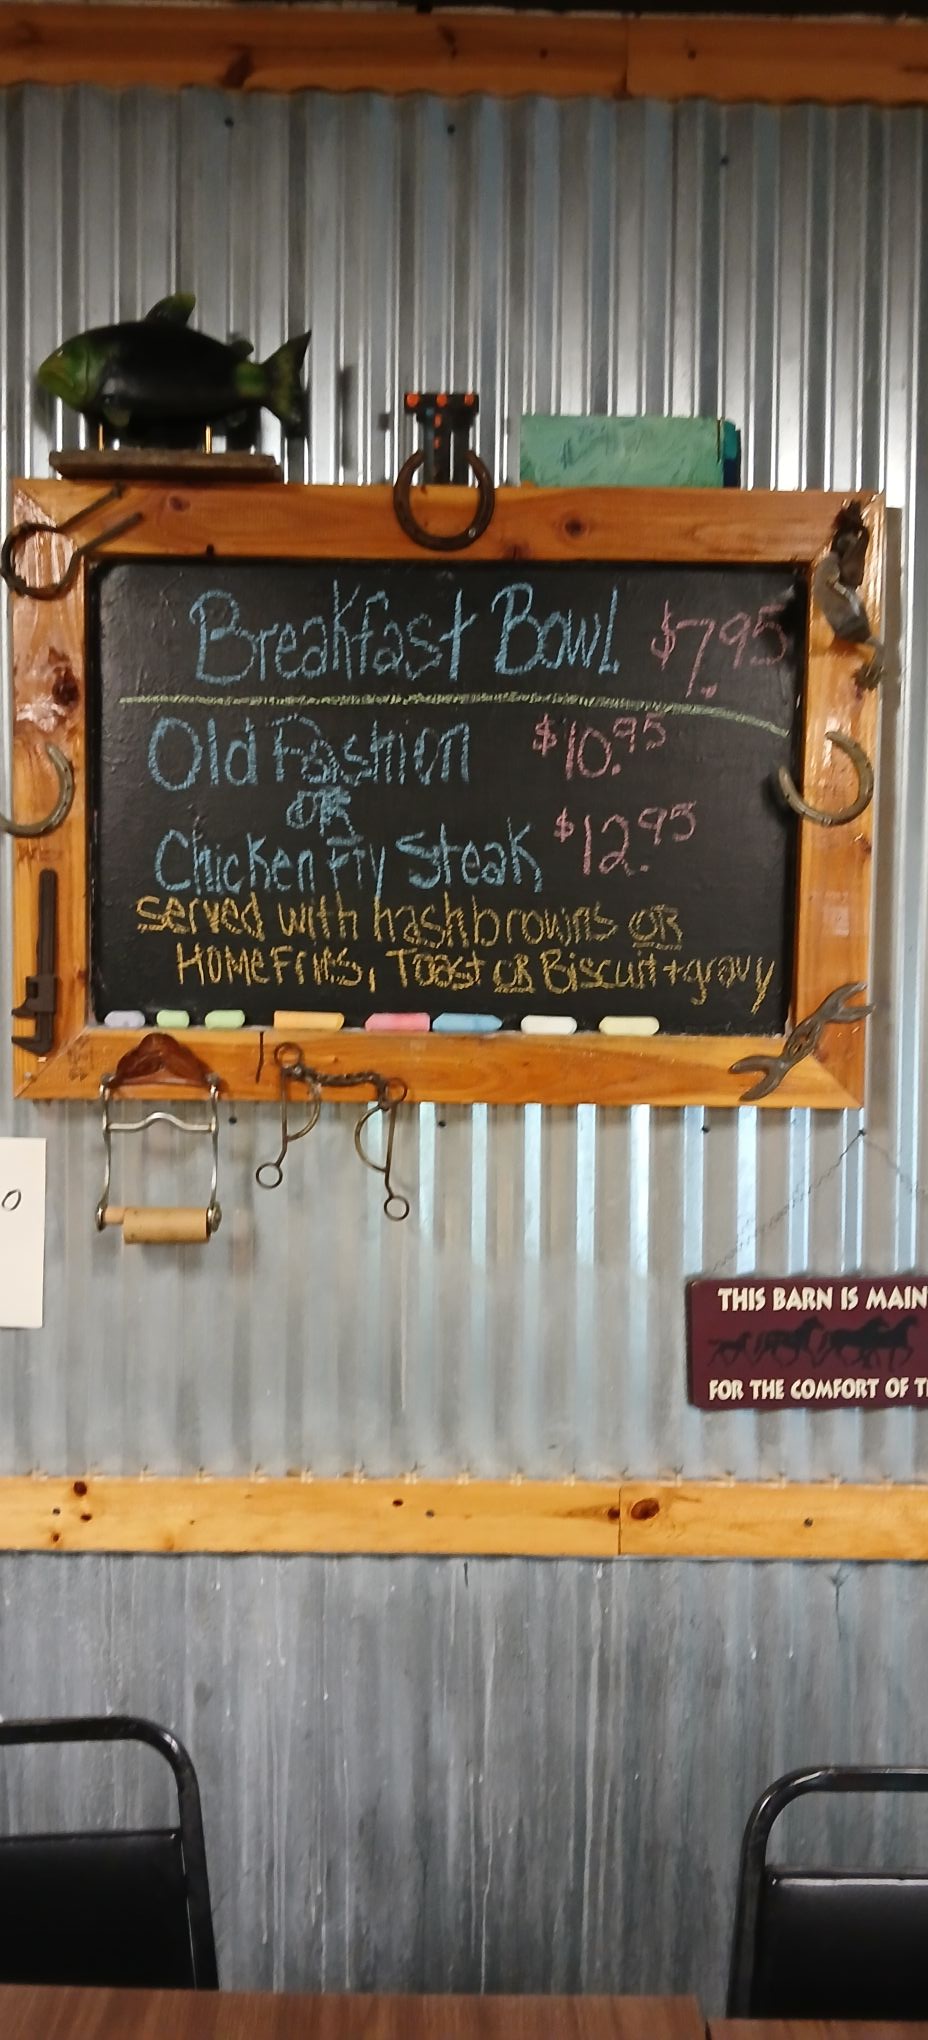 Breakfast Bowl $7.95
Old Fashion $10.95
OR
Chicken Fry Steak $12.95
served with hashbrowns OR
HOMEFRIES, Toast OR Biscuit + gravy
O
THIS BARN IS MAIN
FOR THE COMFORT OF T